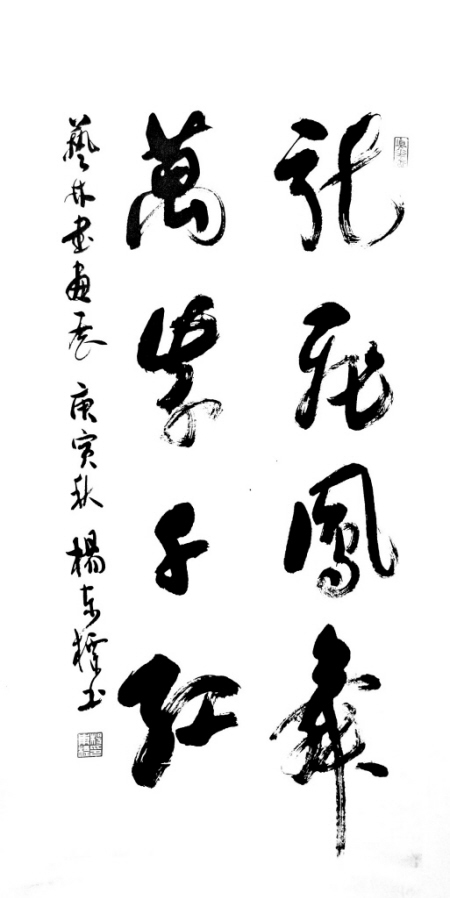 龍飛鳳舞
萬紫千紅
藝林書畫展 庚寅秋 楊東 書